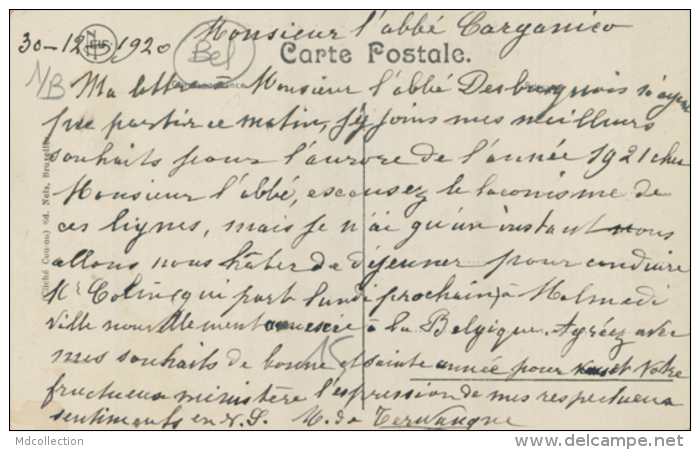 Monsieur l'abbé Carganico
30-12-1920
Bel
Carte Postale.
NB
Ma lettre à Monsieur l'abbé n'ayant
pu partir ce matin, j'y joins mes meilleurs
souhaits pour l'aurore de l'année 1921 cher
Monsieur l'abbé, excusez le laconisme de
ces lignes, mais je n'ai qu'un instant nous
allons nous hâter de déjeuner pour conduire
Mr Colin (qui part lundi prochain) à Malmedi
ville nouvellement annexée à la Belgique. Agréez avec
mes souhaits de bonne et sainte année pour vous et votre
fructueux ministère l'expression de mes respectueux
sentiments en N. S. M. de Terwangne
Ed. Nels, Bruxelles
Mdcollection
www.delcampe.net